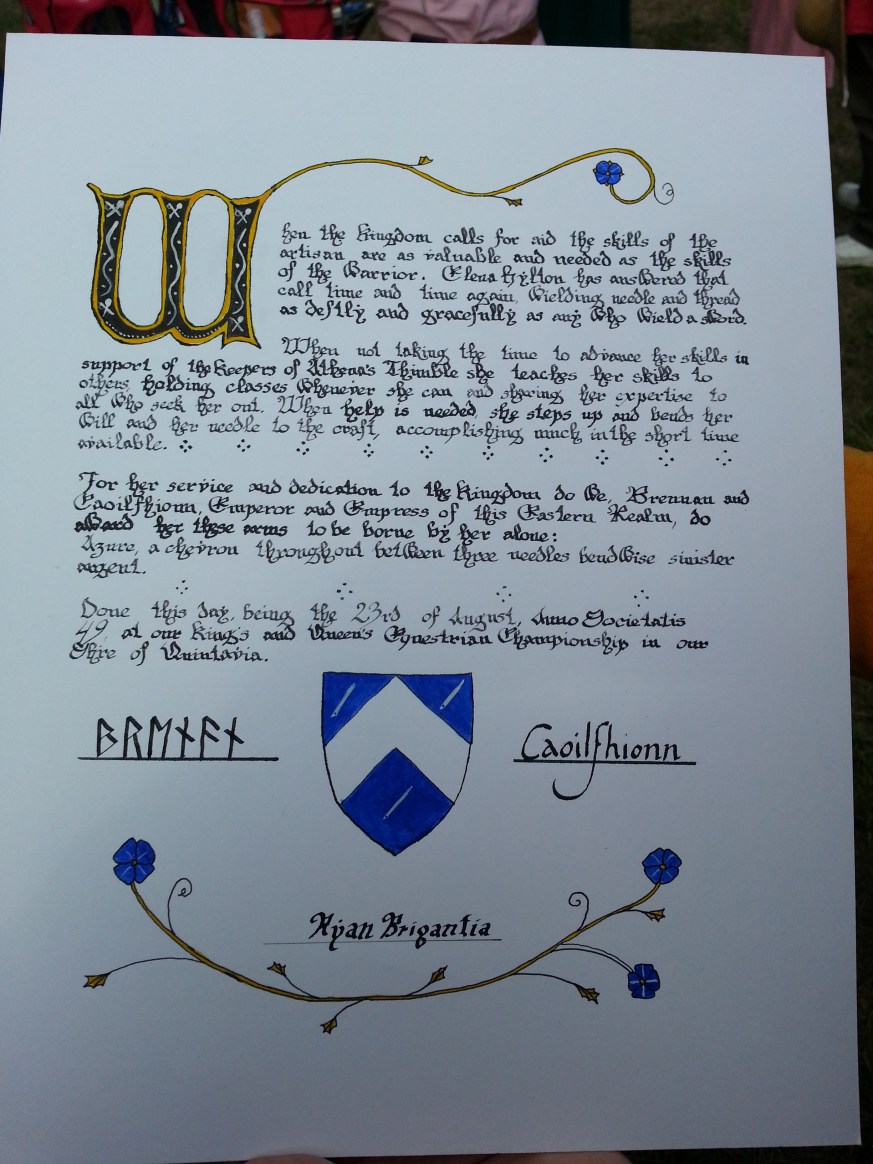 When the Kingdom calls for aid the skills of the
artisan are as valuable and needed as the skills
of the Warrior. Elena Hylton has answered that
call time and time again, Wielding needle and thread
as deftly and gracefully as any Who Wield a sword.
When not taking the time to advance her skills in
support of the Keepers of Athena's Thimble she teaches her skills to
others, holding classes Whenever she can and sharing her expertise to
all Who seek her out. When help is needed, she steps up and bends her
Will and her needle to the craft, accomplishing much in the short time
available.
For her service and dedication to the Kingdom do We, Brennan and
Caoilfhionn, Emperor and Empress of this Eastern Realm, do
aWard her these arms to be borne by her alone:
Azure, a chevron throughout betWeen three needles bendWise sinister
argent.
Done this day, being the 23rd of August, Anno Societatis
49, at our King's and Queen's Equestrian Championship in our
Shire of Quintavia.
ᛒᚱᛖᚾᚨᚾ
Caoilfhionn
Ryan Brigantia